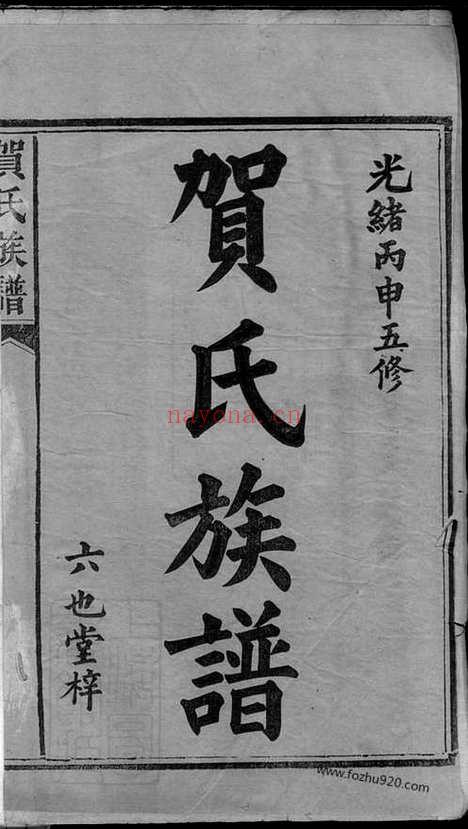 光緒丙申五修
賀氏族譜
六也堂梓
賀氏族譜
nayona.cn
www.fozhu920.com